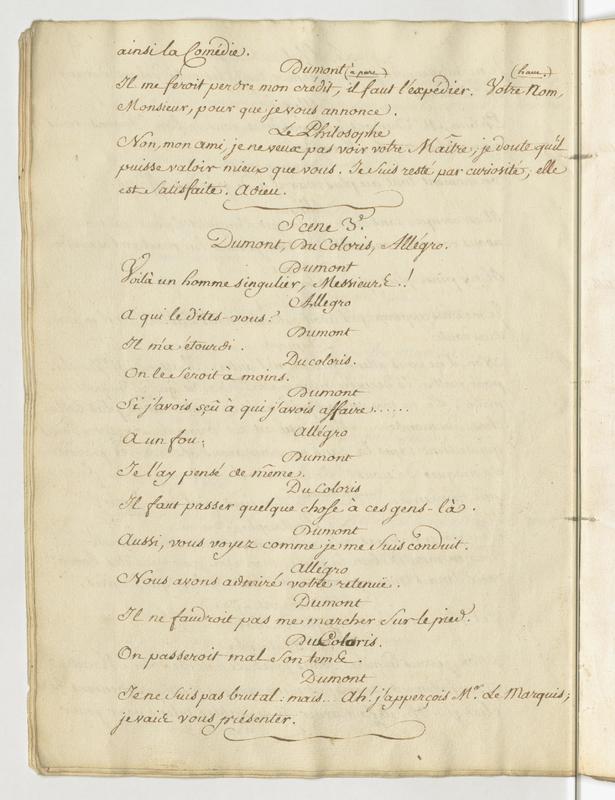 ainsi la Comédie.
Dumont (à part)
Il me feroit perdre mon crédit, il faut l'expédier. (haut.) Votre Nom,
Monsieur, pour que je vous annonce.
Le Philosophe
Non, mon ami, je ne veux pas voir votre Maître, je doute qu'il
puisse valoir mieux que vous. Je suis resté par curiosité, elle
est satisfaite. Adieu.
Scene 3e.
Dumont, Du Coloris, Allégro.
Dumont
Voilà un homme singulier, Messieurs.!
Allegro
A qui le dites-vous?
Dumont
Il m'a étourdi.
Ducoloris.
On le seroit à moins.
Dumont
Si j'avois sçû à qui j'avois affaire......
Allégro
A un fou.
Dumont
Je l'ay pensé de même.
Du Coloris
Il faut passer quelque chose à ces gens-là.
Dumont
Aussi, vous voyez comme je me suis conduit.
Allégro
Nous avons admiré votre retenuë.
Dumont
Il ne faudroit pas me marcher sur le pied.
Du Coloris.
On passeroit mal son tems.
Dumont
Je ne suis pas brutal: mais... Ah! j'apperçois Mr. Le Marquis;
je vais vous présenter.